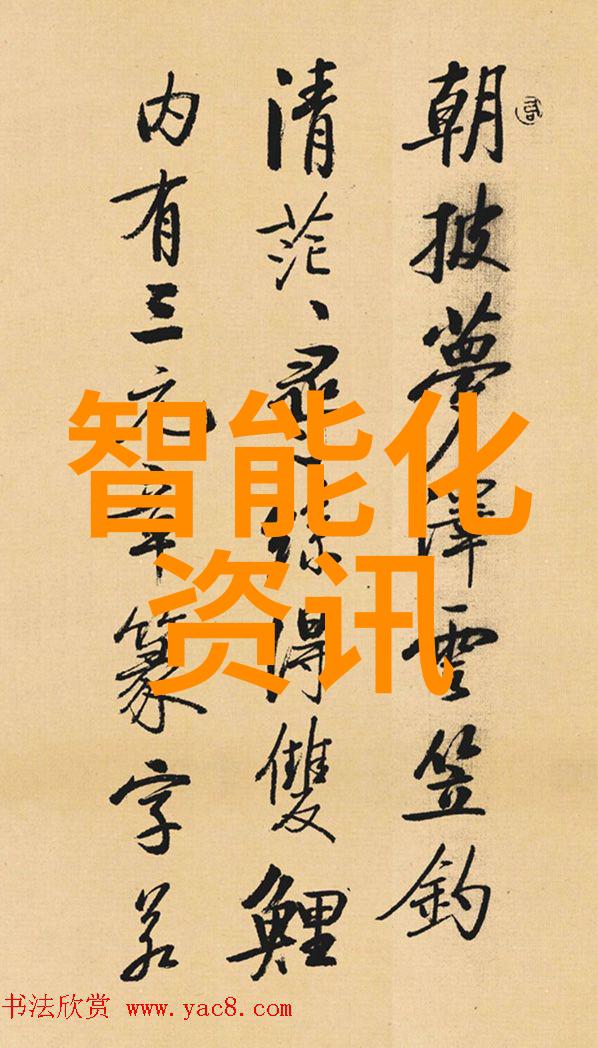 朝披夢澤雲笠釣
清茫、尋絲得雙鯉
内有三元章篆字若
智能化
资讯
书法欣赏 www.yac8.com